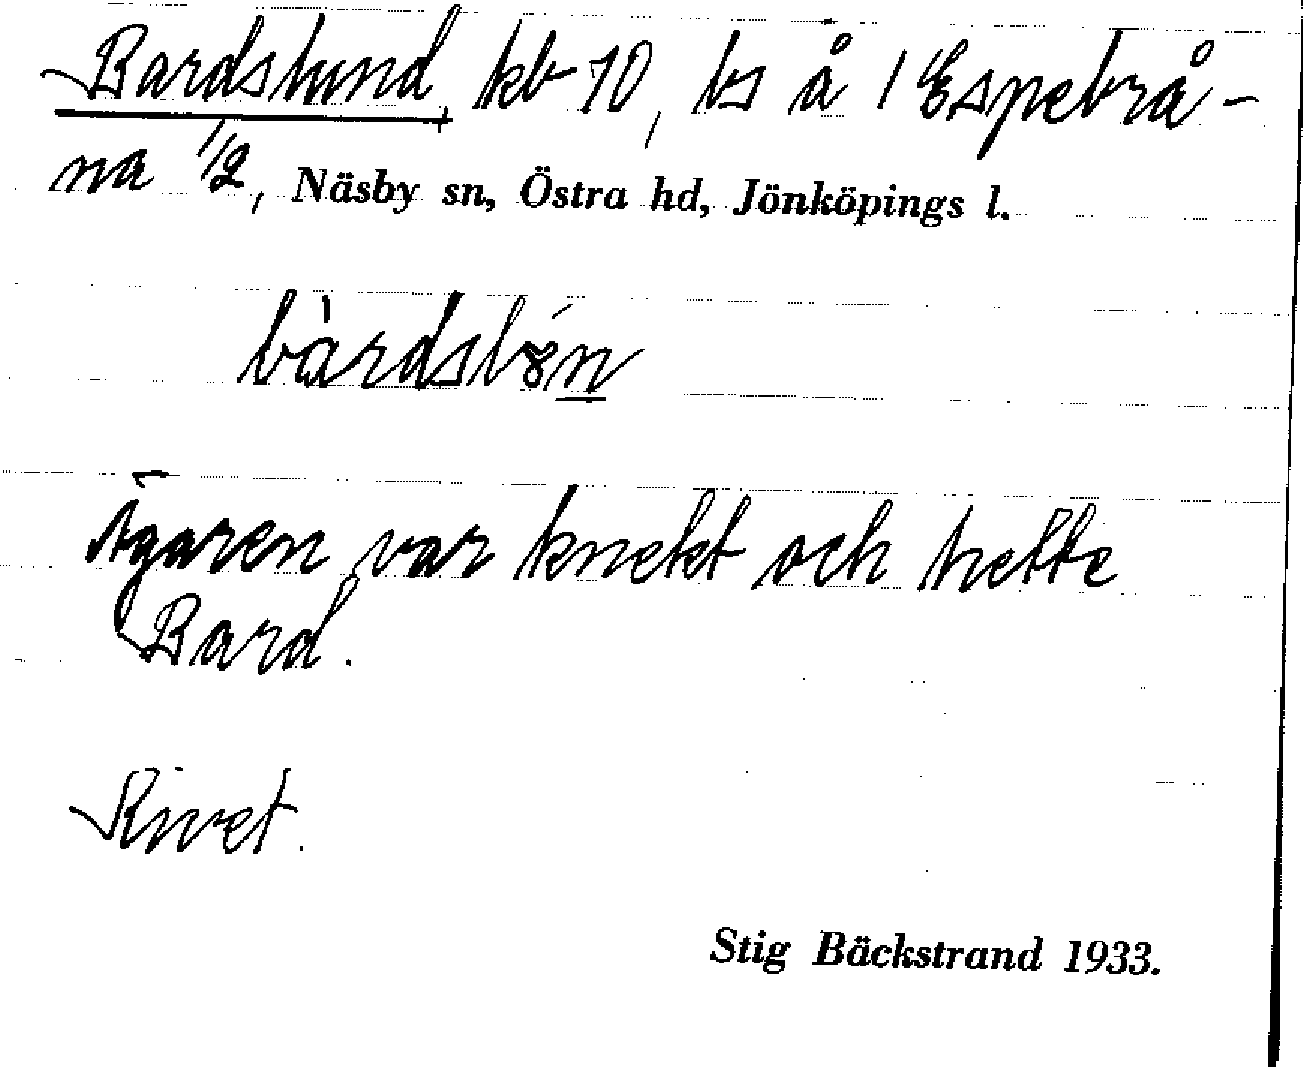 Bardslund, kb 70, ls å 1 Espebrå-
na 1/2, Näsby sn, Östra hd, Jönköpings l.
Ägaren var knekt och hette
Bard.
Rivet.
Stig Bäckstrand 1933.